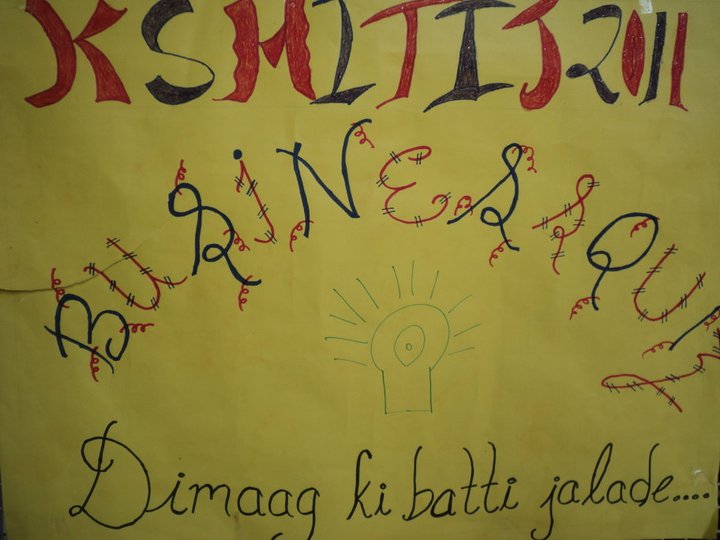 KSHITIJ 2011
BUSiNESS QUIZ
Dimaag ki batti jalade....